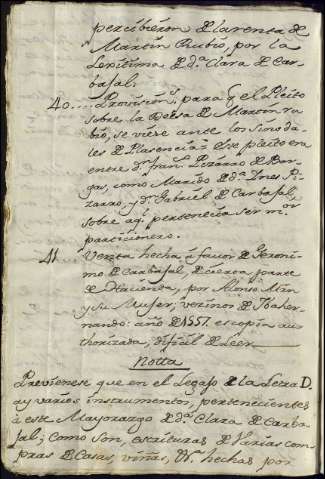 percibieron de la renta de
Martin Rubio, por la
Lexitima de dª. Clara de Car-
bajal.
40.... Provision para q el Pleito
sobre la Deesa de Martin ru-
bio, se viese ante los
les de Plasencia: este pleito era
entre dn. Franco. Pizarro de Bar-
gas, como Marido de dª. Ines Pi-
zarro, y dn. Gabriel de Carbajal,
sobre aq. pertenecia ser
parcionero.
41 Venta hecha à favor de Geroni-
mo de Carbajal de cierta parte
de Hacienda, por Alonso Min
y su Mujer, vecinos de Ibaher-
nando: año de 1557. es copia au-
thorizada, dificil de Leer.
Notta
Previenese que en el Legajo de la Letra D.
ay varios instrumentos, pertenecientes
à este Mayorazgo de dª. Clara de Carba-
jal; como son, escrituras de Varias com-
pras de Casas, viñas, &. hechas por